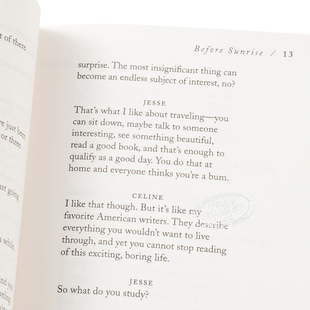 t of there
re just been
or three
ust going
a while.
Before Sunrise / 13
surprise. The most insignificant thing can
become an endless subject of interest, no?
JESSE
That's what I like about traveling—you
can sit down, maybe talk to someone
interesting, see something beautiful,
read a good book, and that's enough to
qualify as a good day. You do that at
home and everyone thinks you're a bum.
CELINE
I like that though. But it's like my
favorite American writers. They describe
everything you wouldn't want to live
through, and yet you cannot stop reading
of this exciting, boring life.
JESSE
So what do you study?